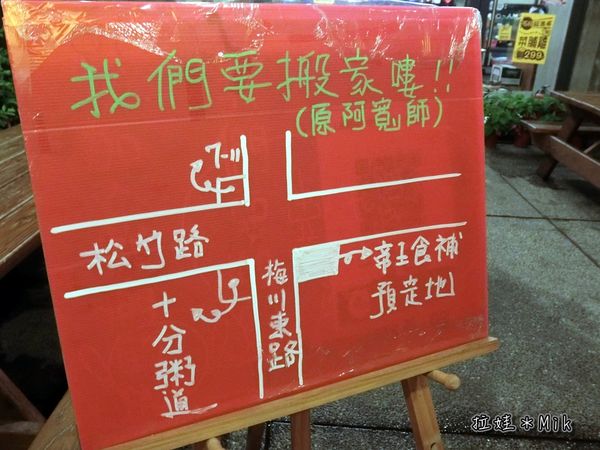 我們要搬家嘍!!
(原阿寬師)
7-11
松竹路
梅川東路
帝王食補
預定地
十分粥道
菜脯雞
299
拉娃＊Mik